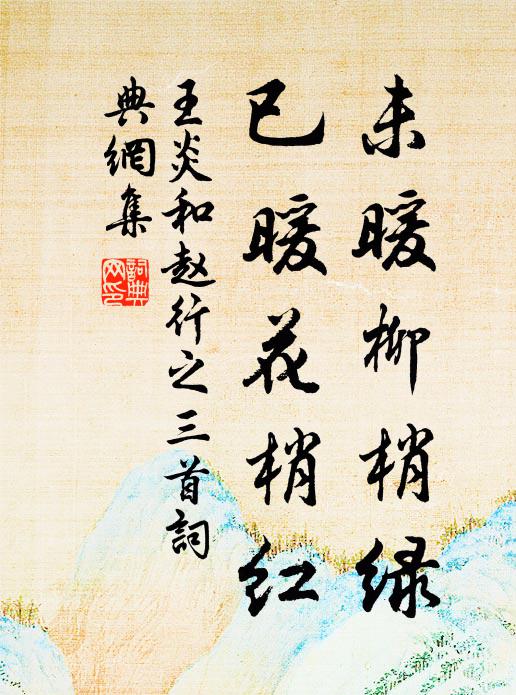 未暖柳梢绿
已暖花梢红
王炎和赵行之三首詞
典網集
詞典网印